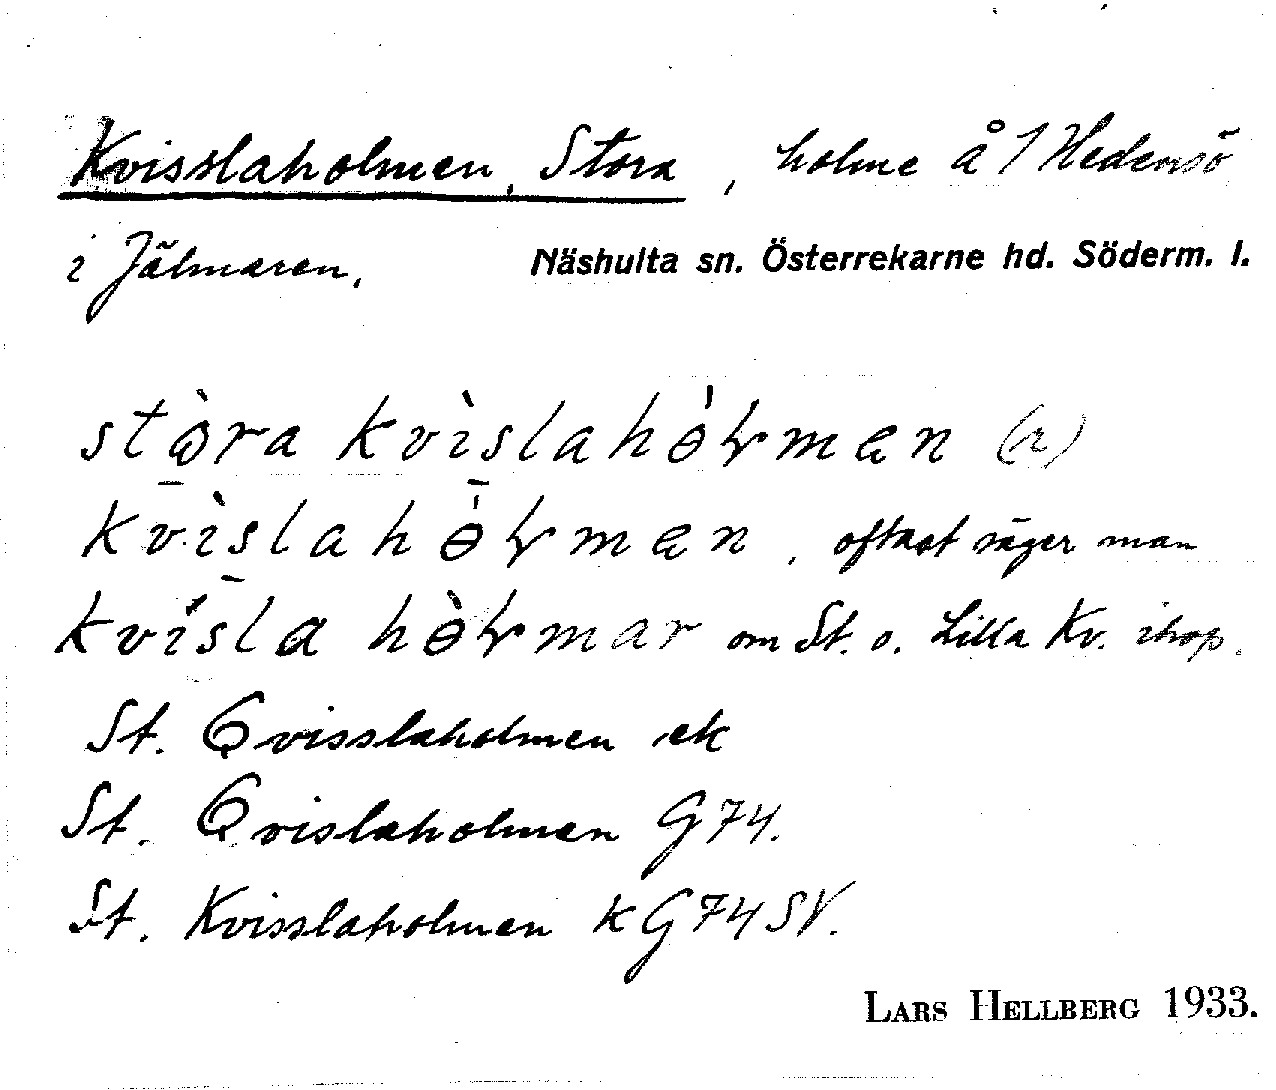 Kvisslaholmen, Stora, holme å 1 Hedensö
i Jälmaren. Näshulta sn. Österrekarne hd. Söderm. l.
stòra kvìslahòɫman (n)
kvìslahɵ̀ɫman, oftast säger man
kvìsla hɵ̀ɫmar om St. o. Lilla Kv. ihop.
St. Qvisslaholmen ek
St. Qvislaholmen G74.
St. Kvisslaholmen kG74SV.
LARS HELLBERG 1933.